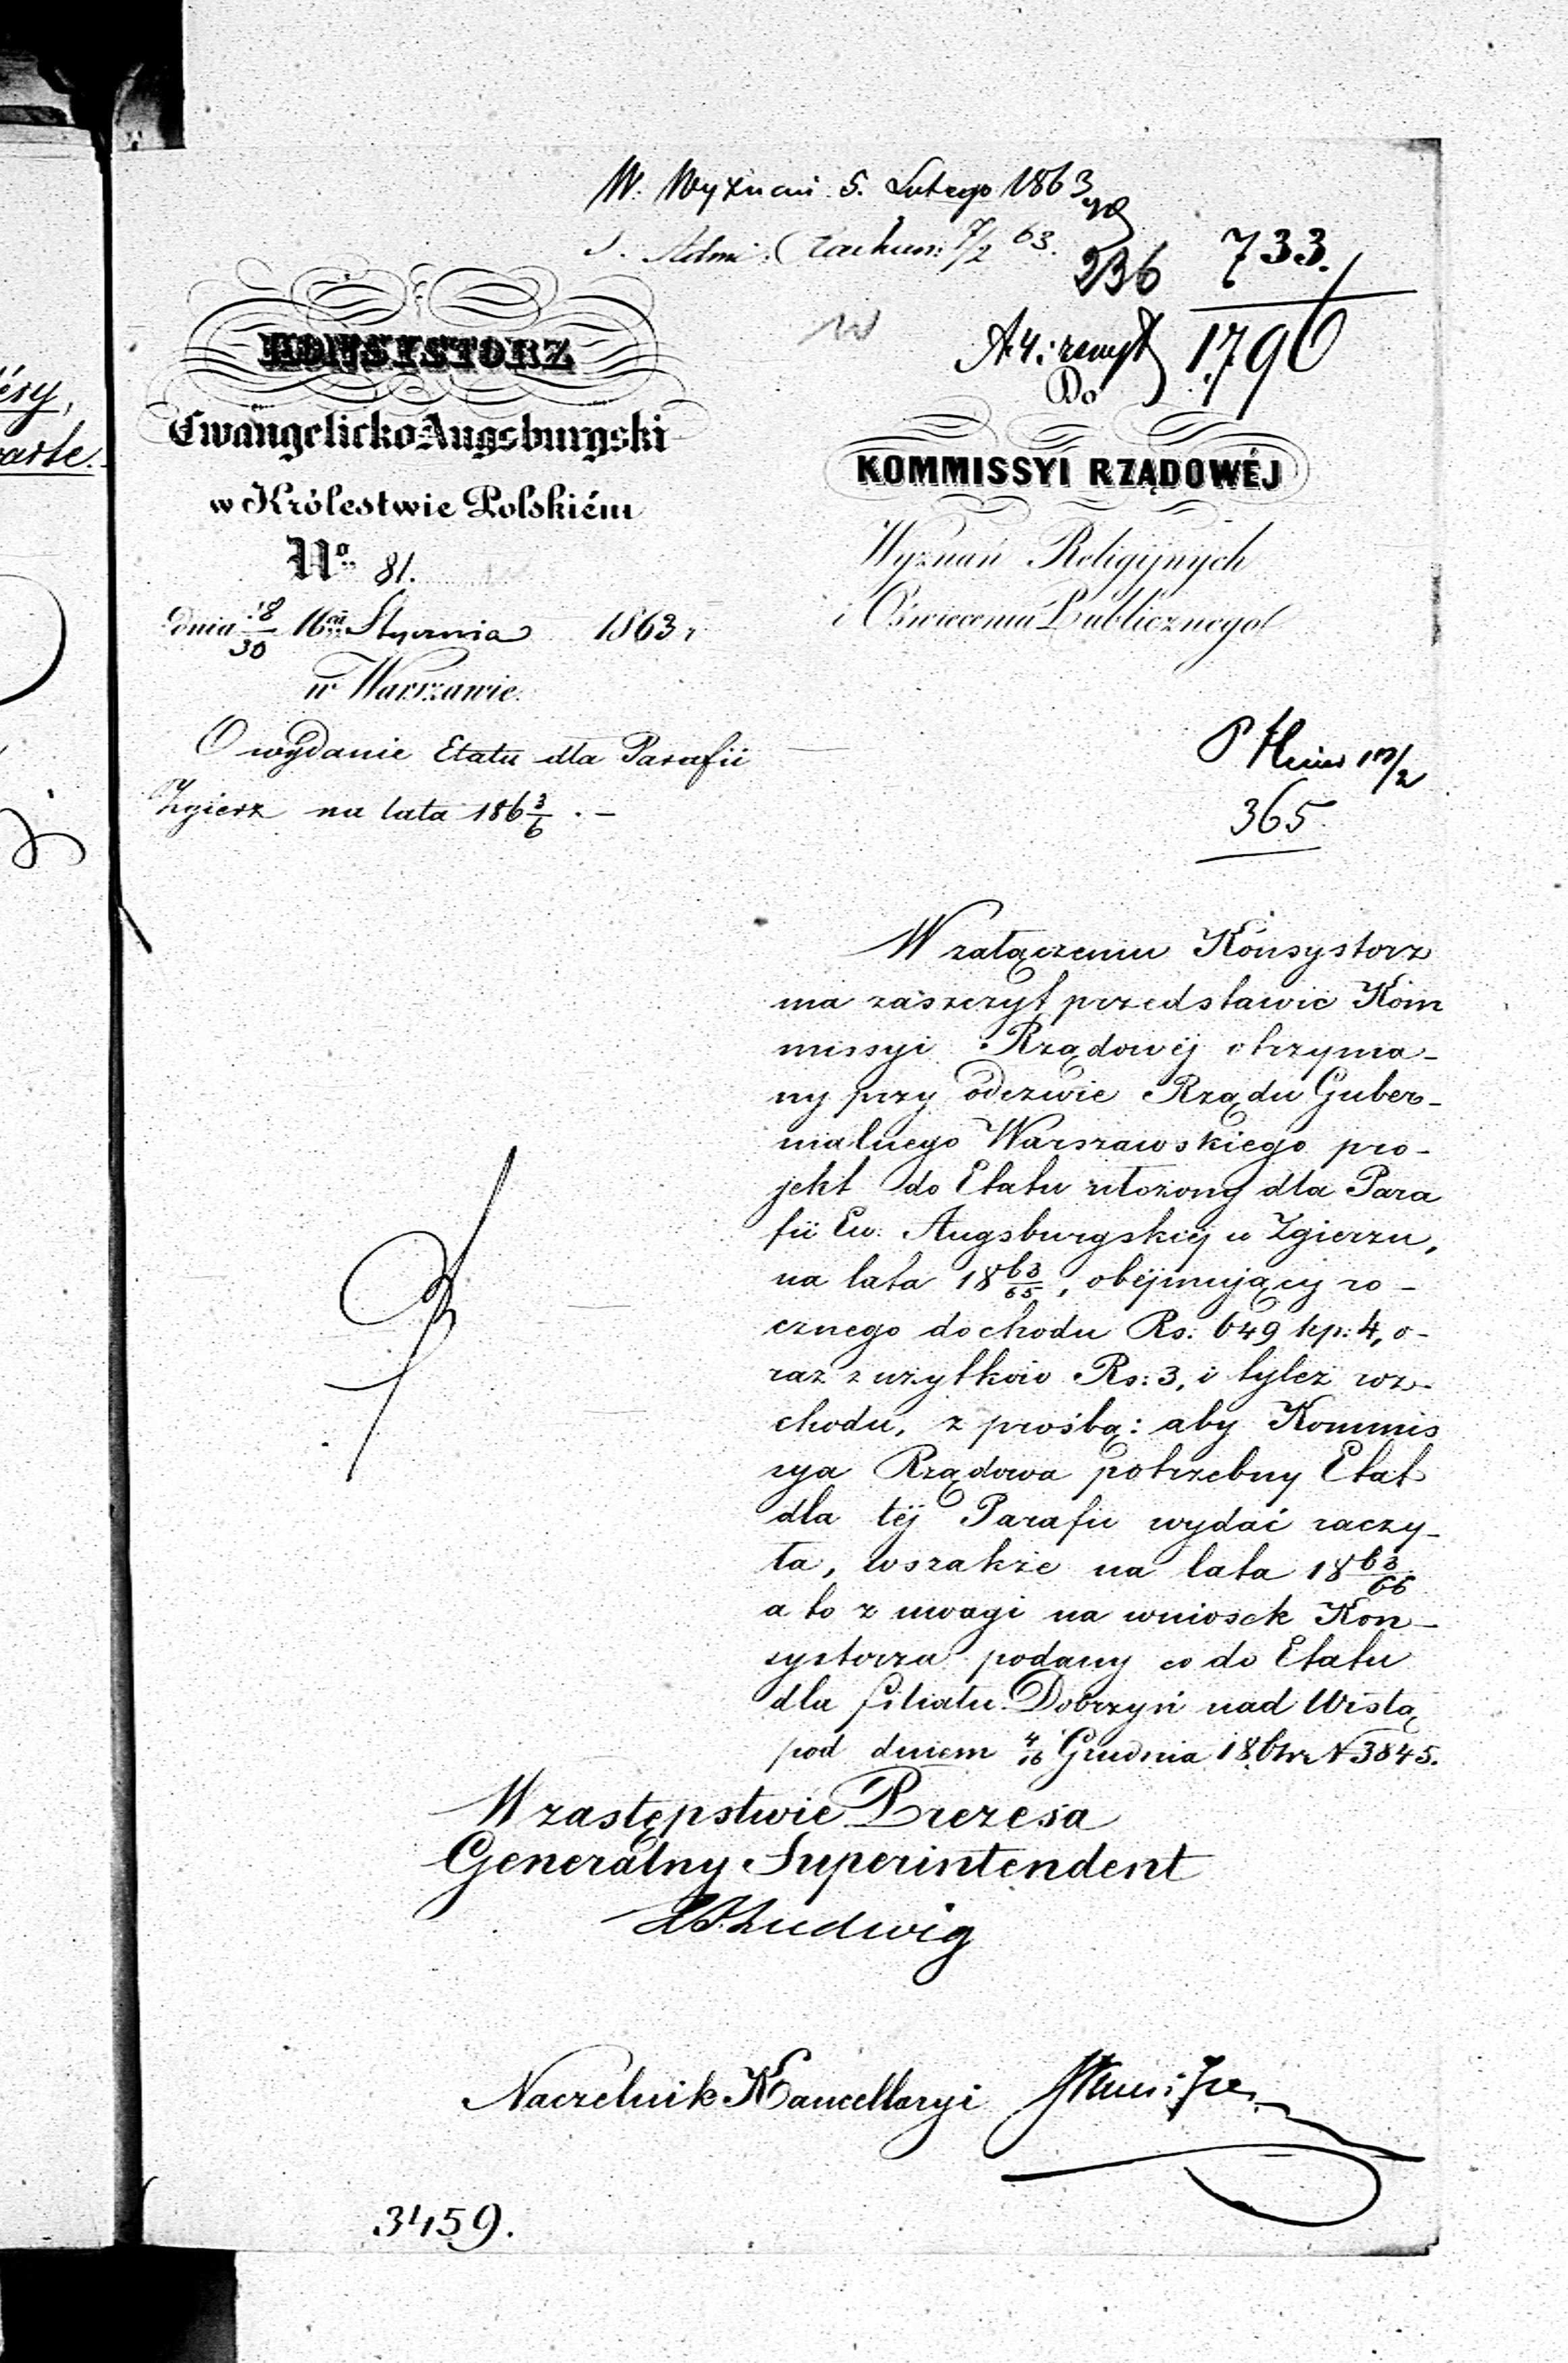 W. Wyznań 5. Lutego 1863
S. Adm: Rachun: 7/2 63.
236 733.
1796
Do
KONSYSTORZ
Ewangelicko-Augsburgski
w Królestwie Polskiém
No 81.
dnia 18/30 Stycznia 1863 r
w Warszawie.
O wydanie Etatu dla Parafii
Zgierz na lata 186 3/6 . —
KOMMISSYI RZĄDOWÉJ
Wyznań Religijnych
i Oświecenia Publicznego
365
W załączeniu Konsystorz
ma zaszczyt przedstawić Kom
missyi Rządowéj otrzyma-
ny przy odezwie Rządu Guber-
nialnego Warszawskiego pro-
jekt do Etatu ułożony dla Para
fii Ew. Augsburgskiéj w Zgierzu,
na lata 18 63/65, obéjmujący ro-
cznego dochodu Rs: 649 kp: 4, o-
raz z użytków Rs: 3, i tyleż roz-
chodu, z prośbą: aby Kommis
sya Rządowa potrzebny Etat
dla téj Parafii wydać raczy-
ła, wszakże na lata 18 63/66
a to z uwagi na wniosek Kon-
systorza podany co do Etatu
dla filiału Dobrzyń nad Wisłą
pod dniem 4/16 Grudnia 1862 r N 3845.
W zastępstwie Prezesa
Generalny Superintendent
Ludwig
Naczelnik Kancellaryi
3459.